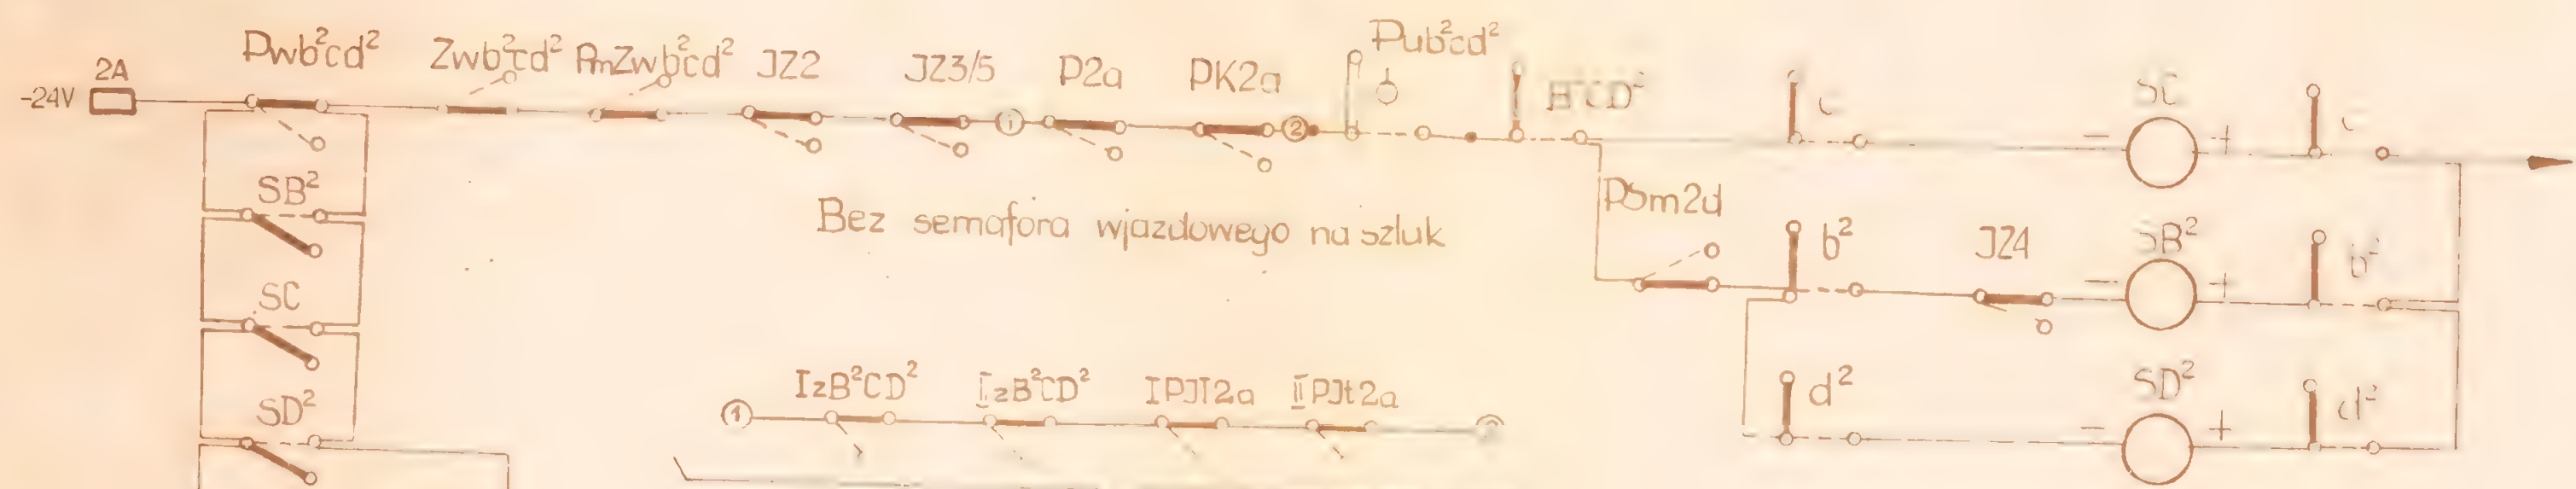 2A
-24V
Pwb²cd²
Zwb²cd²
PmZwb²cd²
JZ2
JZ3/5
P2a
PK2a
Pub²cd²
B²CD²
c
SC
c
1
2
- +
SB²
SC
SD²
Bez semafora wjazdowego na szluk
PSm2d
b²
JZ4
SB²
b²
- +
d²
SD²
d²
- +
IzB²CD²
IIzB²CD²
IPJT2a
IIPJt2a
1